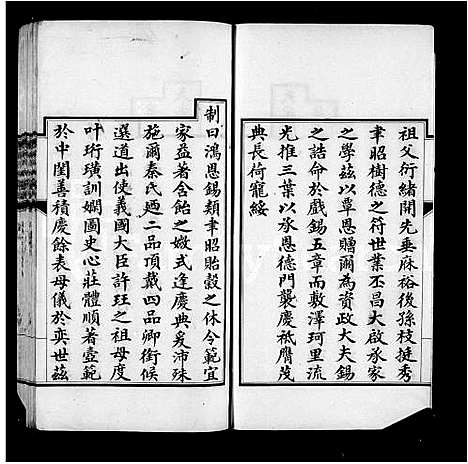 祖父衍緒開先垂庥裕後孫枝挺秀
聿昭樹德之符世業丕昌大啟承家
之學茲以覃恩贈爾為資政大夫錫
之誥命於戲錫五章而敷澤珂里流
光推三葉以承恩德門襲慶祗膺茂
典長荷寵綏
制曰鴻恩錫類聿昭貽穀之休令範宜
家益著含飴之媺式逢慶典爰沛殊
施爾秦氏廼二品頂戴四品卿銜候
選道出使義國大臣許珏之祖母度
叶珩璜訓嫻圖史心莊體順著壼範
於中閨善積慶餘表母儀於奕世茲